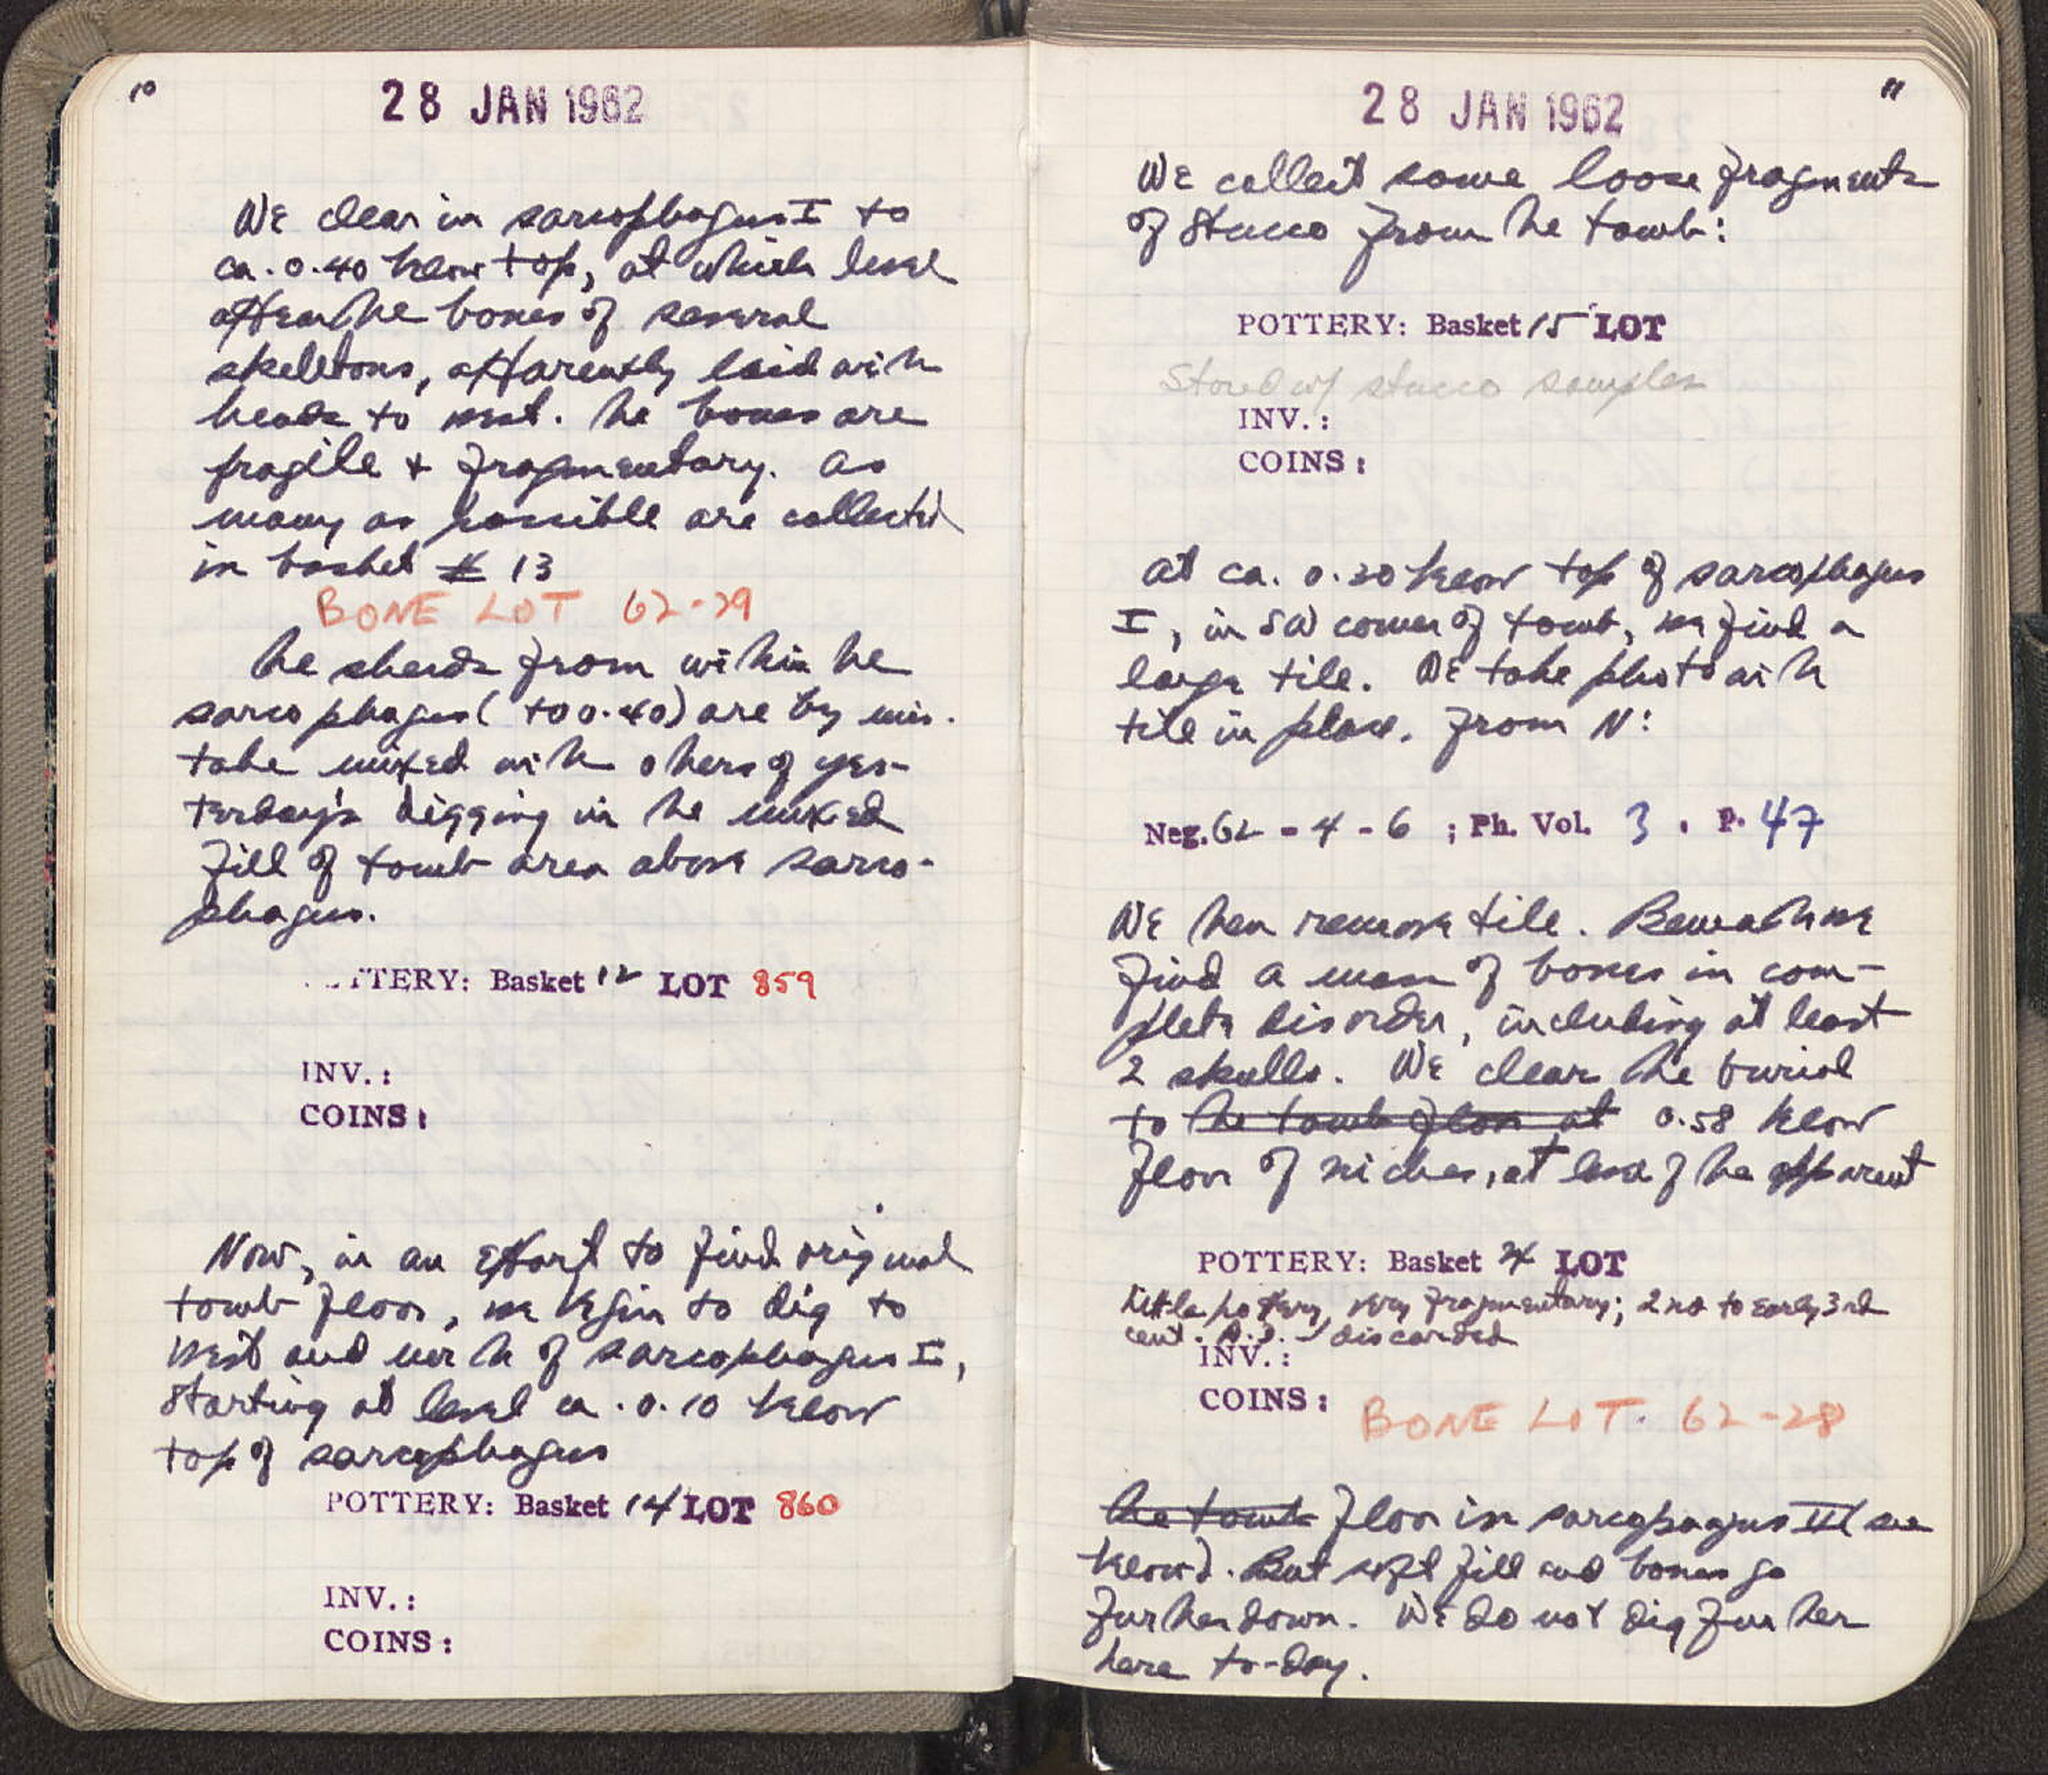 10
28 JAN 1962
We clear in sarcophagus I to
ca. 0.40 below top, at which level
appear the bones of several
skeletons, apparently laid with
heads to west. The bones are
fragile + fragmentary. As
many as possible are collected
in basket # 13
BONE LOT 62-29
The sherds from within the
sarcophagus (to 0.40) are by mis-
take mixed with others of yes-
terday's digging in the mixed
fill of tomb area above sarco-
phagus.
POTTERY: Basket 12 LOT 859
INV.:
COINS:
Now, in an effort to find original
tomb floor, we begin to dig to
west and north of sarcophagus I,
starting at level ca. 0.10 below
top of sarcophagus
POTTERY: Basket 14 LOT 860
INV.:
COINS:
11
28 JAN 1962
We collect some loose fragments
of stucco from the tomb:
POTTERY: Basket 15 LOT
Stored w/ stucco samples
INV.:
COINS:
At ca. 0.30 below top of sarcophagus
I, in SW corner of tomb, we find a
large tile. We take photo with
tile in place. From N:
Neg. 62 - 4 - 6 ; Ph. Vol. 3 . P. 47
We then remove tile. Beneath we
find a mass of bones in com-
plete disorder, including at least
2 skulls. We clear the burial
to the tomb floor at 0.58 below
floor of niches, at level of the apparent
POTTERY: Basket LOT
Little pottery, very fragmentary; 2nd to early 3rd
cent. A.D. - discarded
INV.:
COINS:
BONE LOT. 62-28
the tomb floor in sarcophagus III (see
below). But soft fill and bones go
further down. We do not dig further
here to-day.